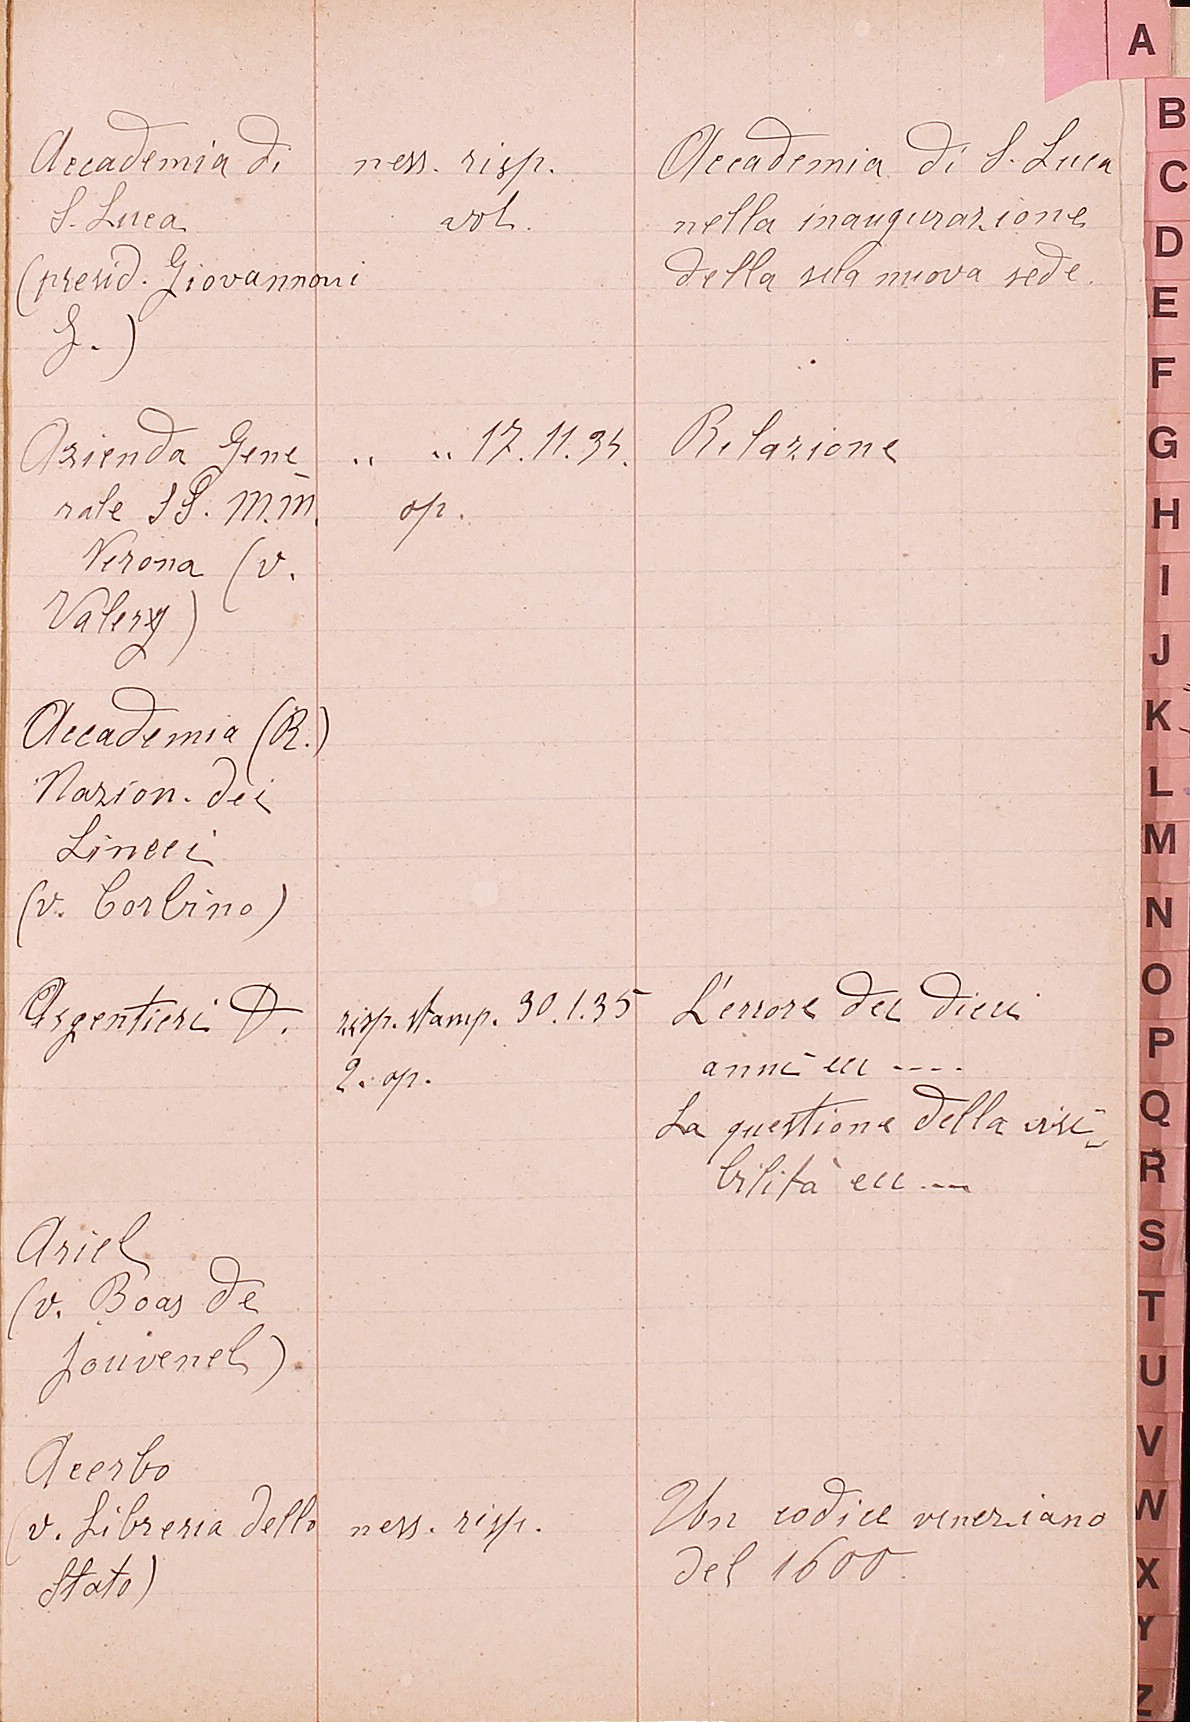 A
B
C
D
E
F
G
H
I
J
K
L
M
N
O
P
Q
R
S
T
U
V
W
X
Y
Z
Accademia di ness. risp. Accademia di S. Luca
S. Luca vol. nella inaugurazione
(presid. Giovannoni della sua nuova sede.
G.)
Azienda Gene „ „ 17.11.34. Relazione
rale SS. M.M. op.
Verona (v.
Valery)
Accademia (R.)
Nazion. dei
Lincei
(v. Corbino)
Argentieri D. risp. stamp. 30.1.35 L'errore dei dieci
2. op. anni ecc ----
La questione della visi-
bilità ecc ---
Ariel
(v. Boas de
Jouvenel)
Acerbo
(v. Libreria dello ness. risp. Un codice veneziano
Stato) del 1600.